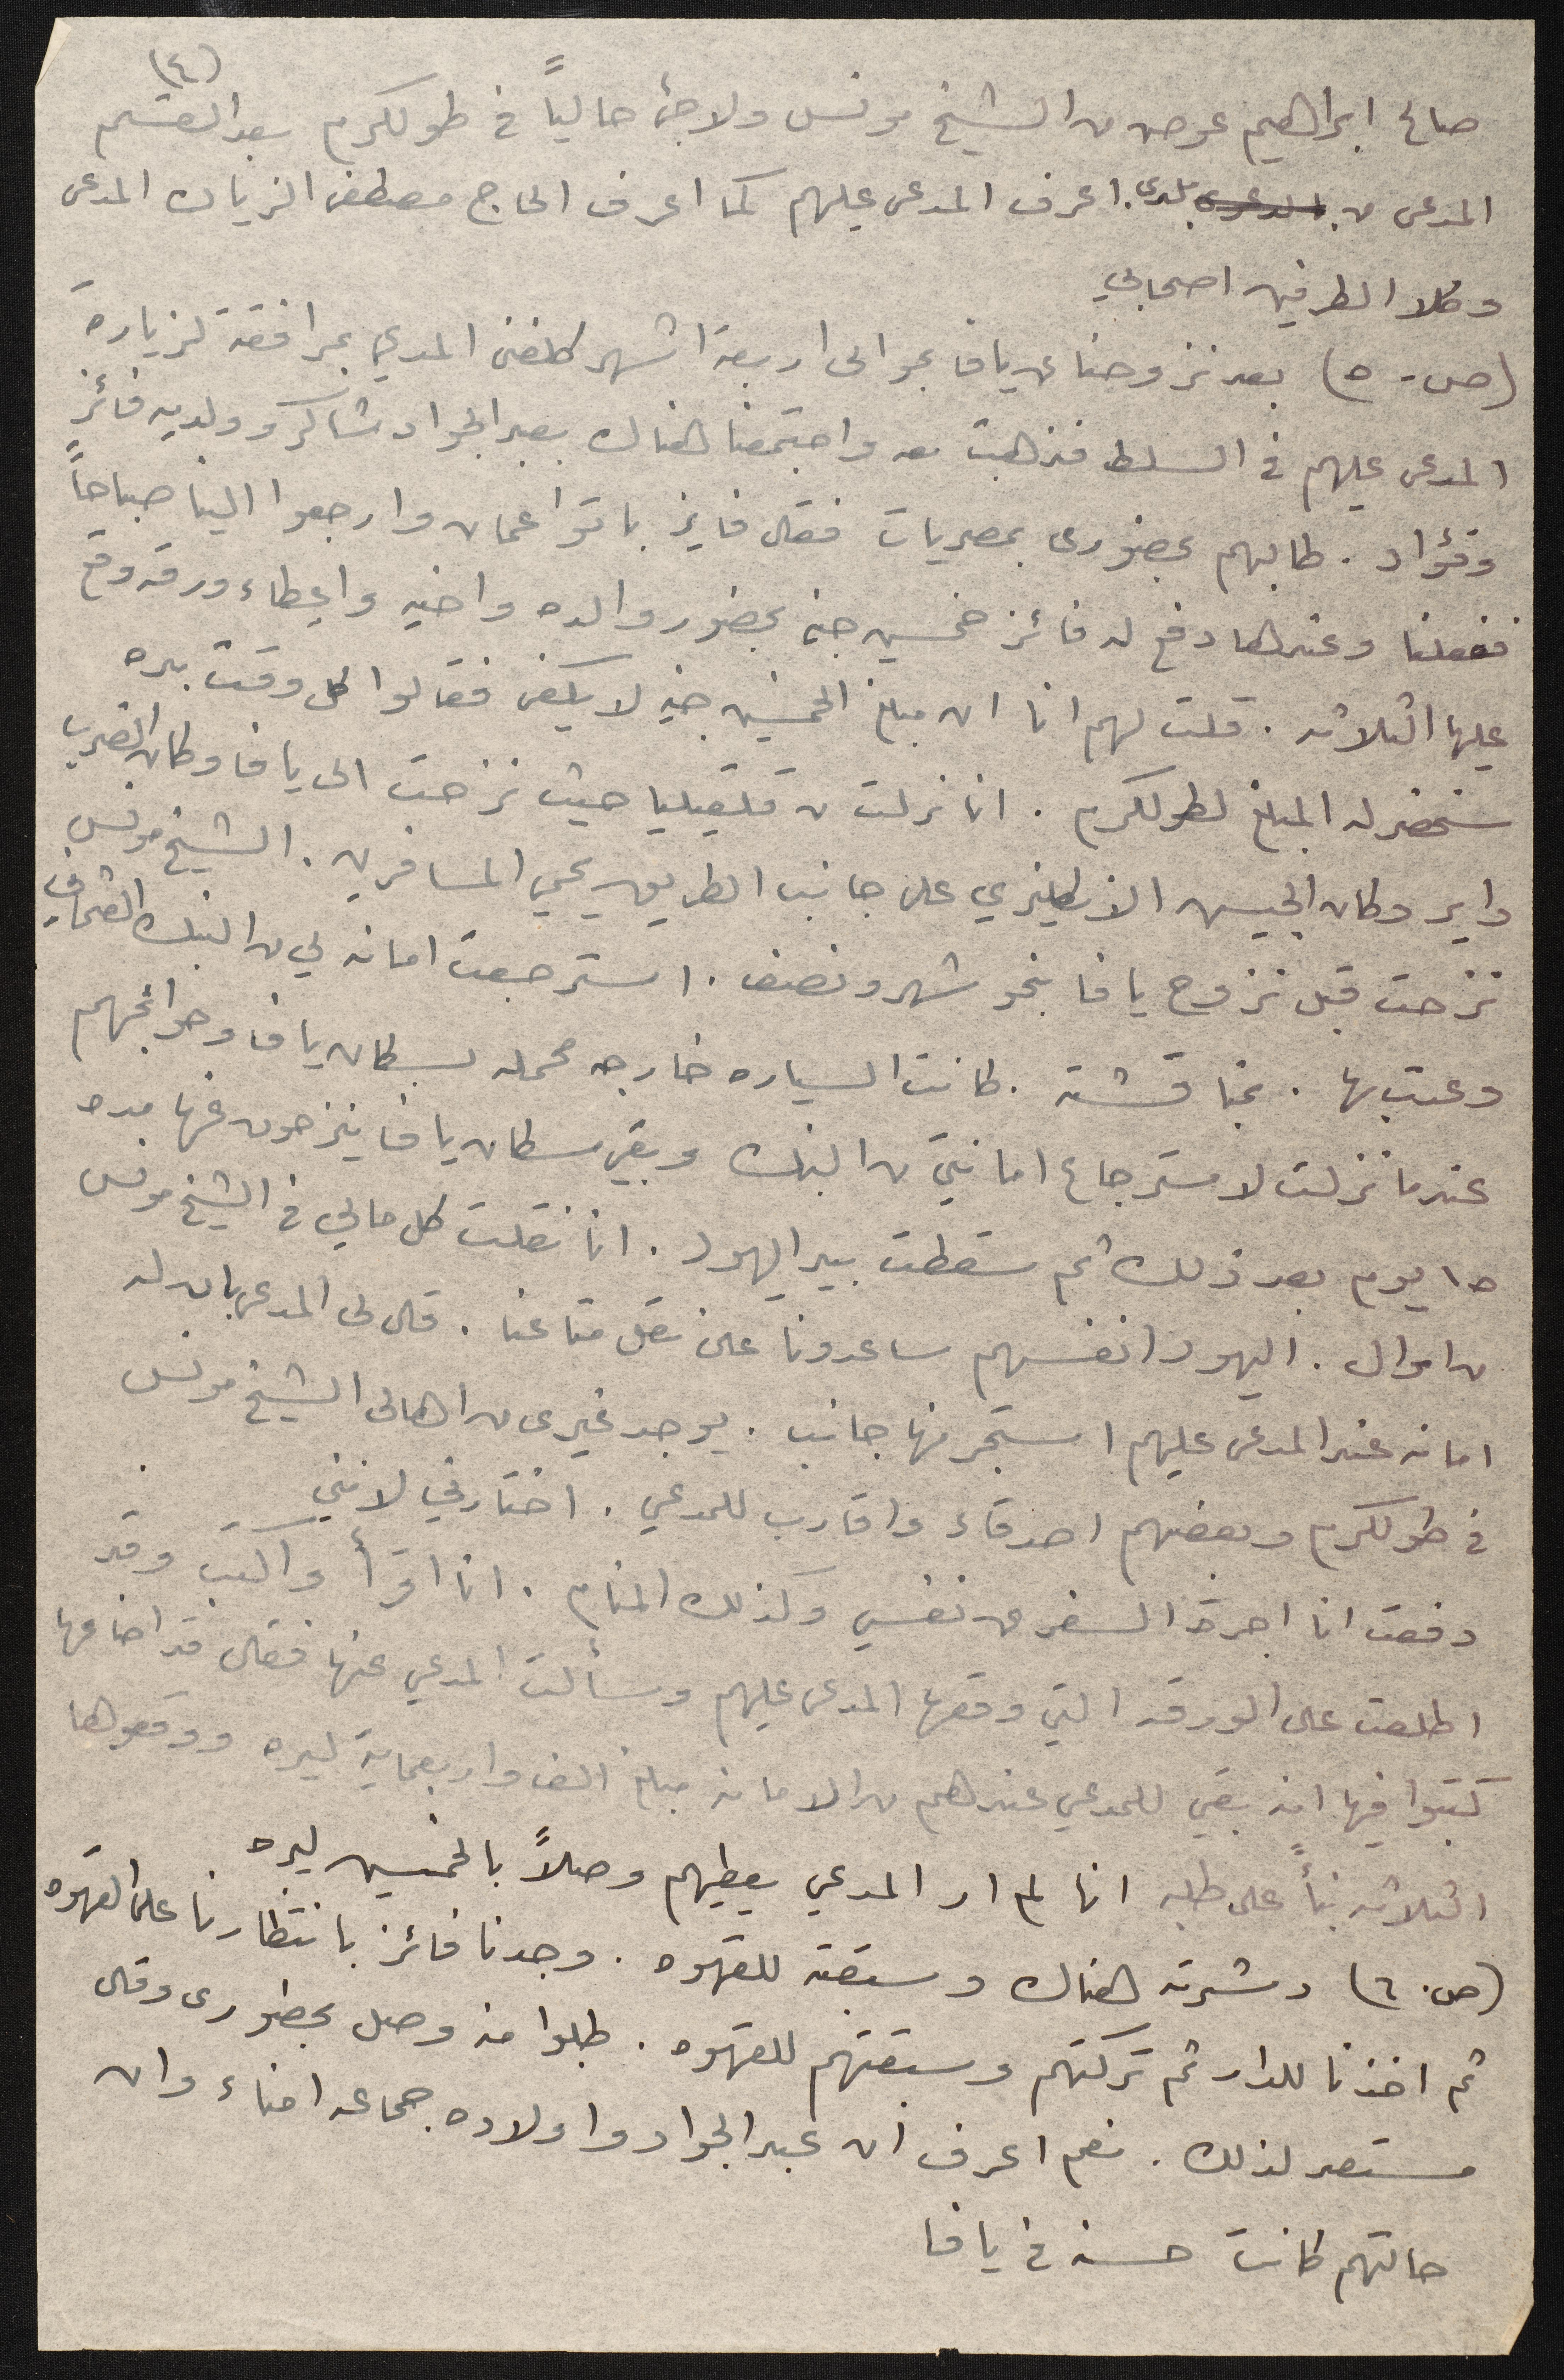 (٤)
صالح ابراهيم عوض من الشيخ مونس ولاجئ حالياً في طولكرم بعد القسم
المدعى من بلدى. اعرف المدعى عليهم كما اعرف الحاج مصطفى الزيات المدعى
وكلا الطرفين اصحابي
(ص- ٥) بعد نزوحنا عن يافا بحوالى اربعة اشهر كلفنى المدعي بمرافقته لزيارة
المدعى عليهم في السلط فذهبت معه واجتمعنا هناك بعبد الجواد شاكر وولديه فائز
وفؤاد. طالبهم بحضورى بمصريات فقال فايز باتوا عمان وارجعوا الينا صباحاً
ففعلنا وعندها دفع له فائز خمسين جنيه بحضور والده واخيه واعطاء ورقه وقع
عليها الثلاثه. قلت لهم انا ان مبلغ الخمسين جنيه لا يكفى فقالوا كل وقت بده
سنحضر له المبلغ لطولكرم. انا نزلت من قلقيليا حيث نزحت الى يافا وكان الضرب
داير وكان الجيش الانكليزي على جانب الطريق يحمي المسافرين. الشيخ مونس
نزحت قبل نزوح يافا بنحو شهر ونصف. استرجعت امانه لي من البنك العثماني
وعدت بها. بمناقشته. كانت السياره خارجه محمله بسكان يافا وحوائجهم
عندما نزلت لاسترجاع امانتي من البنك وبقي سكان يافا ينزحون عنها مده
١٥ يوم بعد ذلك ثم سقطت بيد اليهود. انا نقلت كل مالي في الشيخ مونس
من اموال. اليهود انفسهم ساعدونا على نقل متاعنا. قال لى المدعى بان له
امانه عند المدعى عليهم استجر منها جانب. يوجد غيرى من اهالى الشيخ مونس
في طولكرم وبعضهم اصدقاء واقارب للمدعي. اختارني لانني
دفعت انا اجرة السفر من نفسي وكذلك المنام. انا اقرأ واكتب وقد
اطلعت على الورقه التي وقعها المدعى عليهم وسألت المدعي عنها فقال قد اضاعها
كتبوا فيها انه بقي للمدعي عندهم من الامانه مبلغ الف واربعماية ليره ووقعوها
الثلاثه بنأً على طلبه انا لم ار المدعي يعطيهم وصلاً بالخمسين ليره
(ص. ٦) دشرته هناك وسبقته للقهوه. وجدنا فائز بانتظارنا على القهوه
ثم اخذنا للدار ثم تركتهم وسبقتهم للقهوه. طلبوا منه وصل بحضورى وقال
مستعد لذلك. نعم اعرف ان عبد الجواد واولاده جماعه امناء وان
حالتهم كانت حسنه في يافا